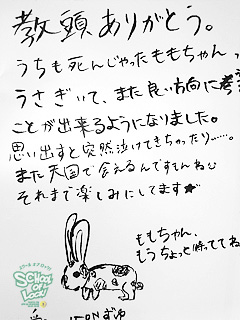 教頭ありがとう。
うちも死んじゃったももちゃん、
うさぎいて、また良い方向に考
ことが出来るようになりました。
思い出すと突然泣けてきちゃったり……。
また天国で会えるんですもんね
それまで楽しみにしてます
ももちゃん、
もうちょっと待っててね
SCHOOL OF LOCK!